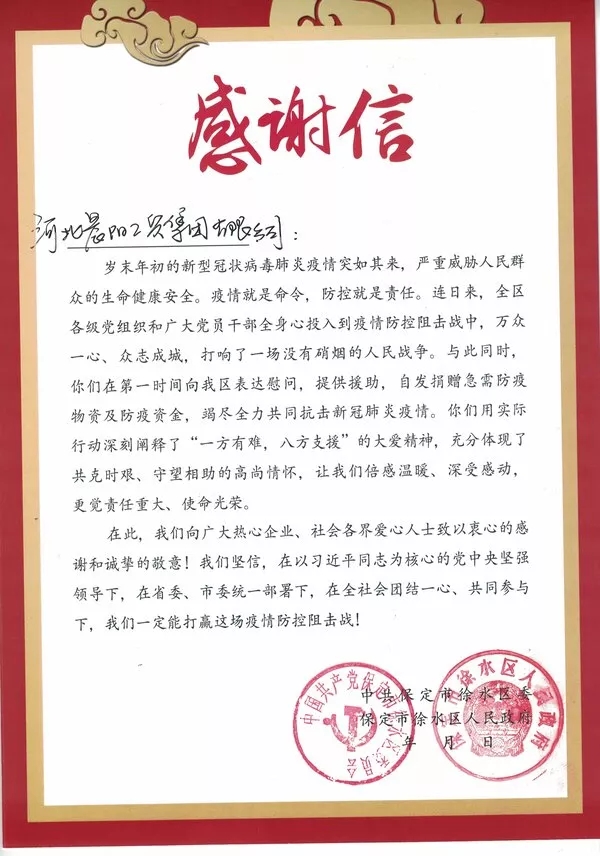 感谢信
河北晨阳工贸集团有限公司：
岁末年初的新型冠状病毒肺炎疫情突如其来，严重威胁人民群
众的生命健康安全。疫情就是命令，防控就是责任。连日来，全区
各级党组织和广大党员干部全身心投入到疫情防控阻击战中，万众
一心、众志成城，打响了一场没有硝烟的人民战争。与此同时，
你们在第一时间向我区表达慰问，提供援助，自发捐赠急需防疫
物资及防疫资金，竭尽全力共同抗击新冠肺炎疫情。你们用实际
行动深刻阐释了“一方有难，八方支援”的大爱精神，充分体现了
共克时艰、守望相助的高尚情怀，让我们倍感温暖、深受感动，
更觉责任重大、使命光荣。
在此，我们向广大热心企业、社会各界爱心人士致以衷心的感
谢和诚挚的敬意！我们坚信，在以习近平同志为核心的党中央坚强
领导下，在省委、市委统一部署下，在全社会团结一心、共同参与
下，我们一定能打赢这场疫情防控阻击战！
中共保定市徐水区委
保定市徐水区人民政府
年 月 日
中国共产党保定市徐水区委员会
保定市徐水区人民政府